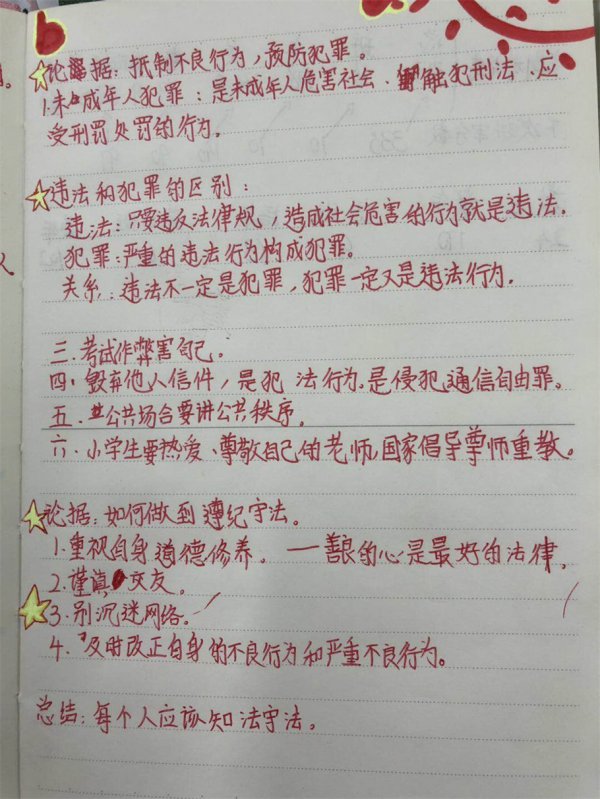 论据：抵制不良行为，预防犯罪。
1.未成年人犯罪：是未成年人危害社会、触犯刑法、应
受刑罚处罚的行为。
违法和犯罪的区别：
违法：只要违反法律规，造成社会危害的行为就是违法。
犯罪：严重的违法行为构成犯罪。
关系：违法不一定是犯罪，犯罪一定又是违法行为。
三.考试作弊害自己。
四.毁弃他人信件，是犯法行为.是侵犯通信自由罪。
五.公共场合要讲公共秩序。
六、小学生要热爱、尊敬自己的老师,国家倡导尊师重教。
论据：如何做到遵纪守法。
1.重视自身道德修养。——善良的心是最好的法律。
2.谨慎交友。
3.别沉迷网络。
4.及时改正自身的不良行为和严重不良行为。
总结：每个人应该知法守法。